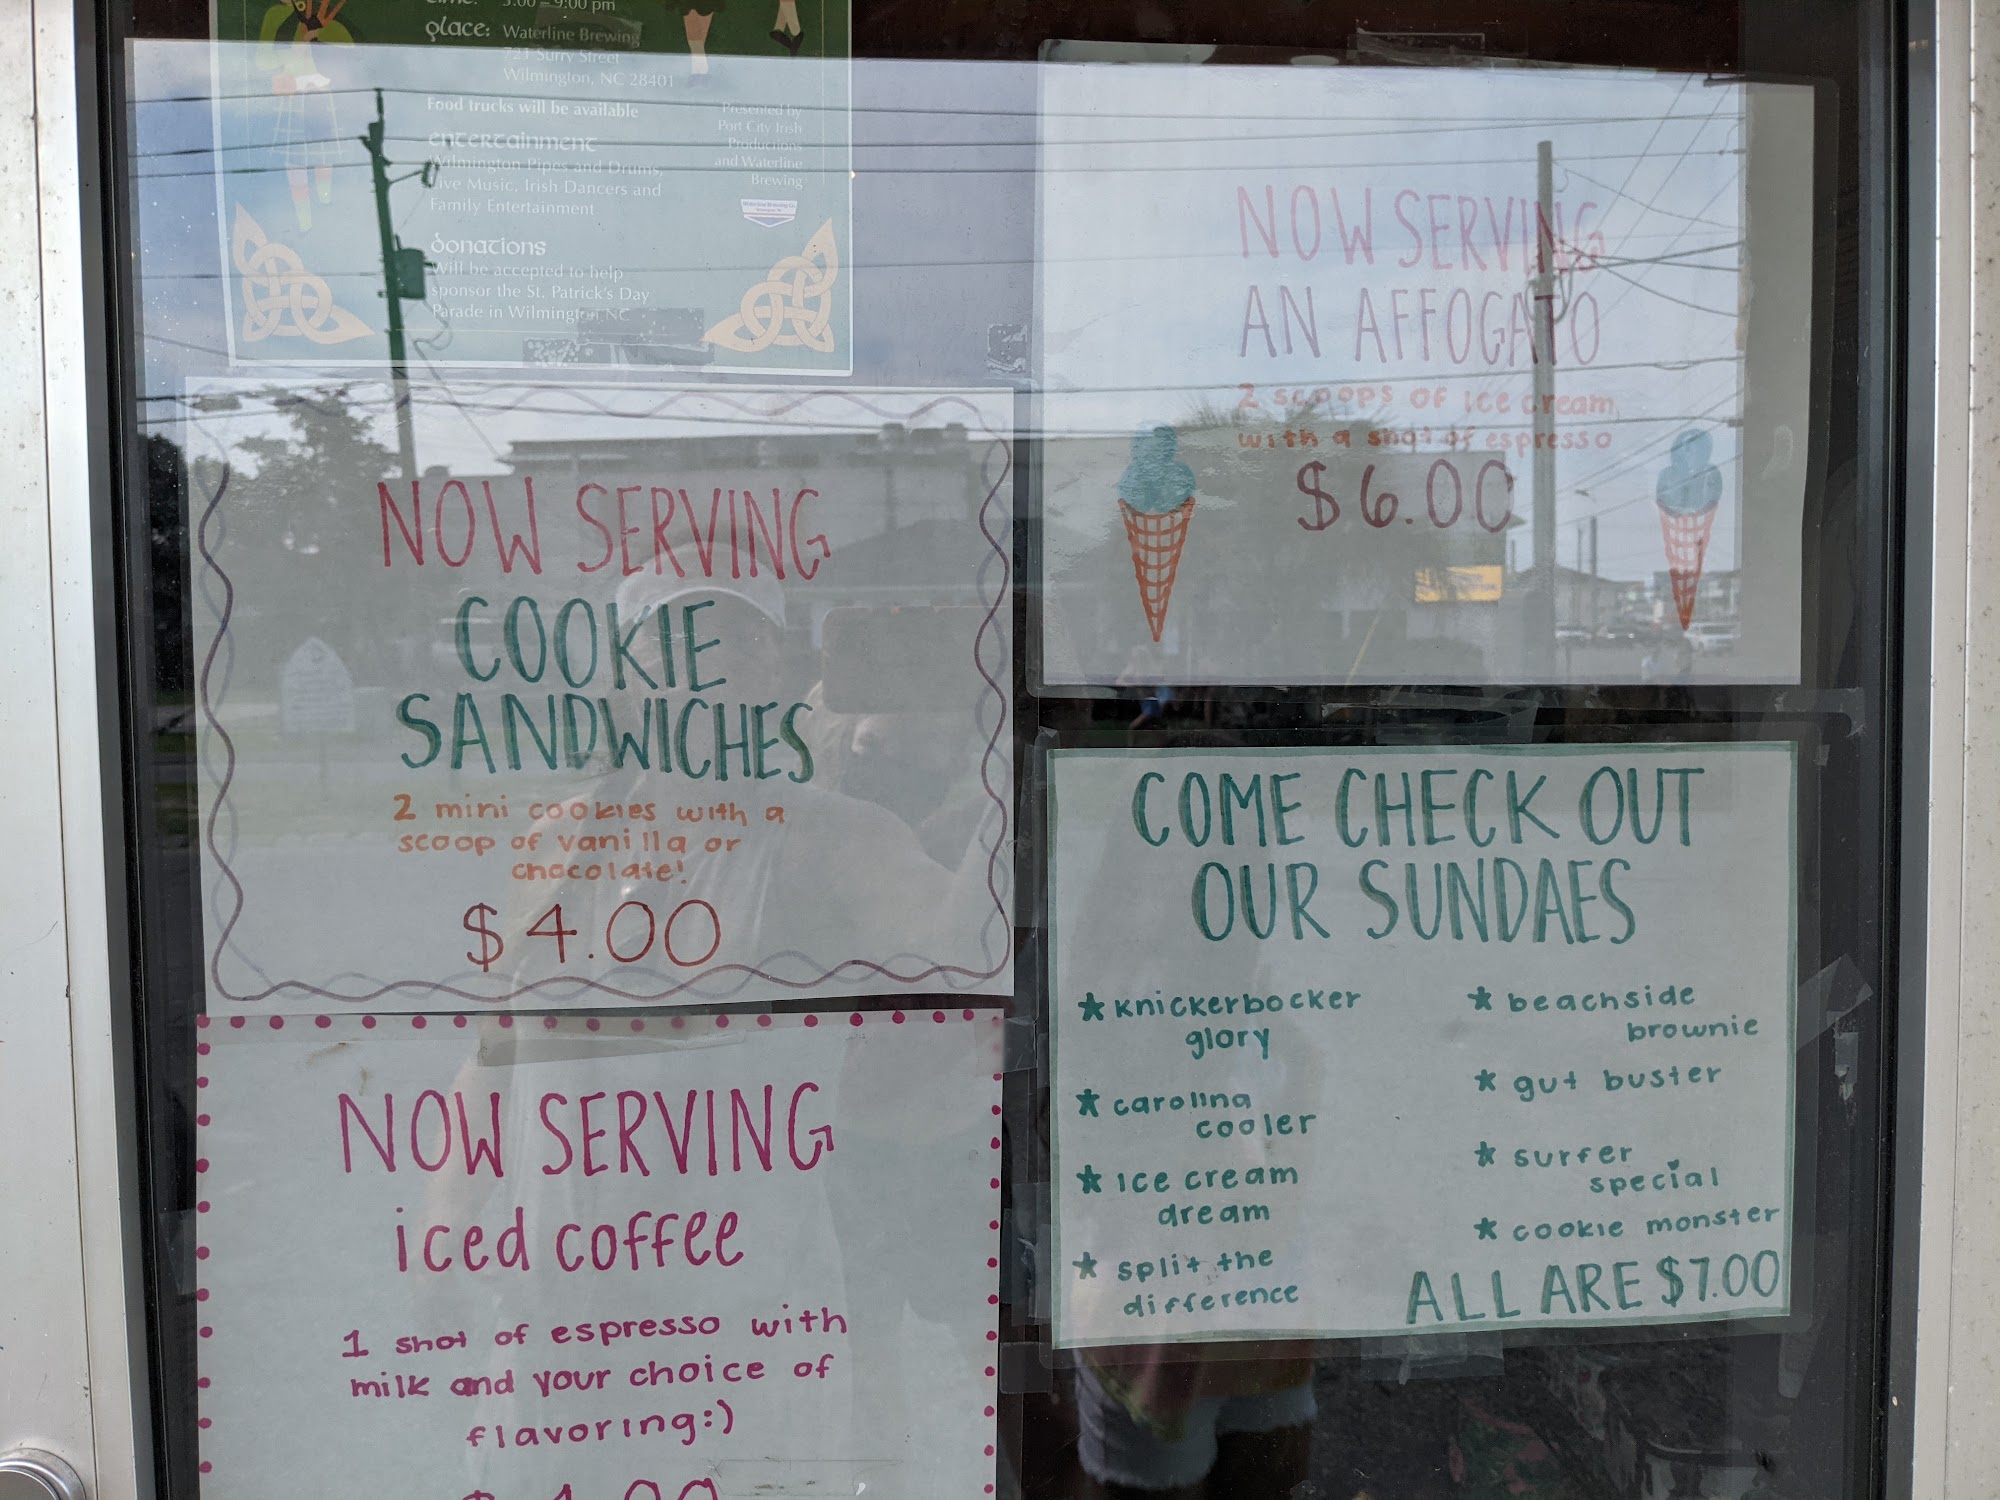 5:00 – 9:00 pm
place: Waterline Brewing
721 Surry Street
Wilmington, NC 28401
Food trucks will be available
entertainment
Wilmington Pipes and Drums,
Live Music, Irish Dancers and
Family Entertainment
donations
Will be accepted to help
sponsor the St. Patrick's Day
Parade in Wilmington, NC
Presented by
Port City Irish
Productions
and Waterline
Brewing
NOW SERVING
AN AFFOGATO
2 scoops of ice cream
with a shot of espresso
$6.00
NOW SERVING
COOKIE
SANDWICHES
2 mini cookies with a
scoop of vanilla or
chocolate!
$4.00
COME CHECK OUT
OUR SUNDAES
* knickerbocker
glory
* carolina
cooler
* ice cream
dream
* split the
difference
* beachside
brownie
* gut buster
* surfer
special
* cookie monster
ALL ARE $7.00
NOW SERVING
iced coffee
1 shot of espresso with
milk and your choice of
flavoring:)